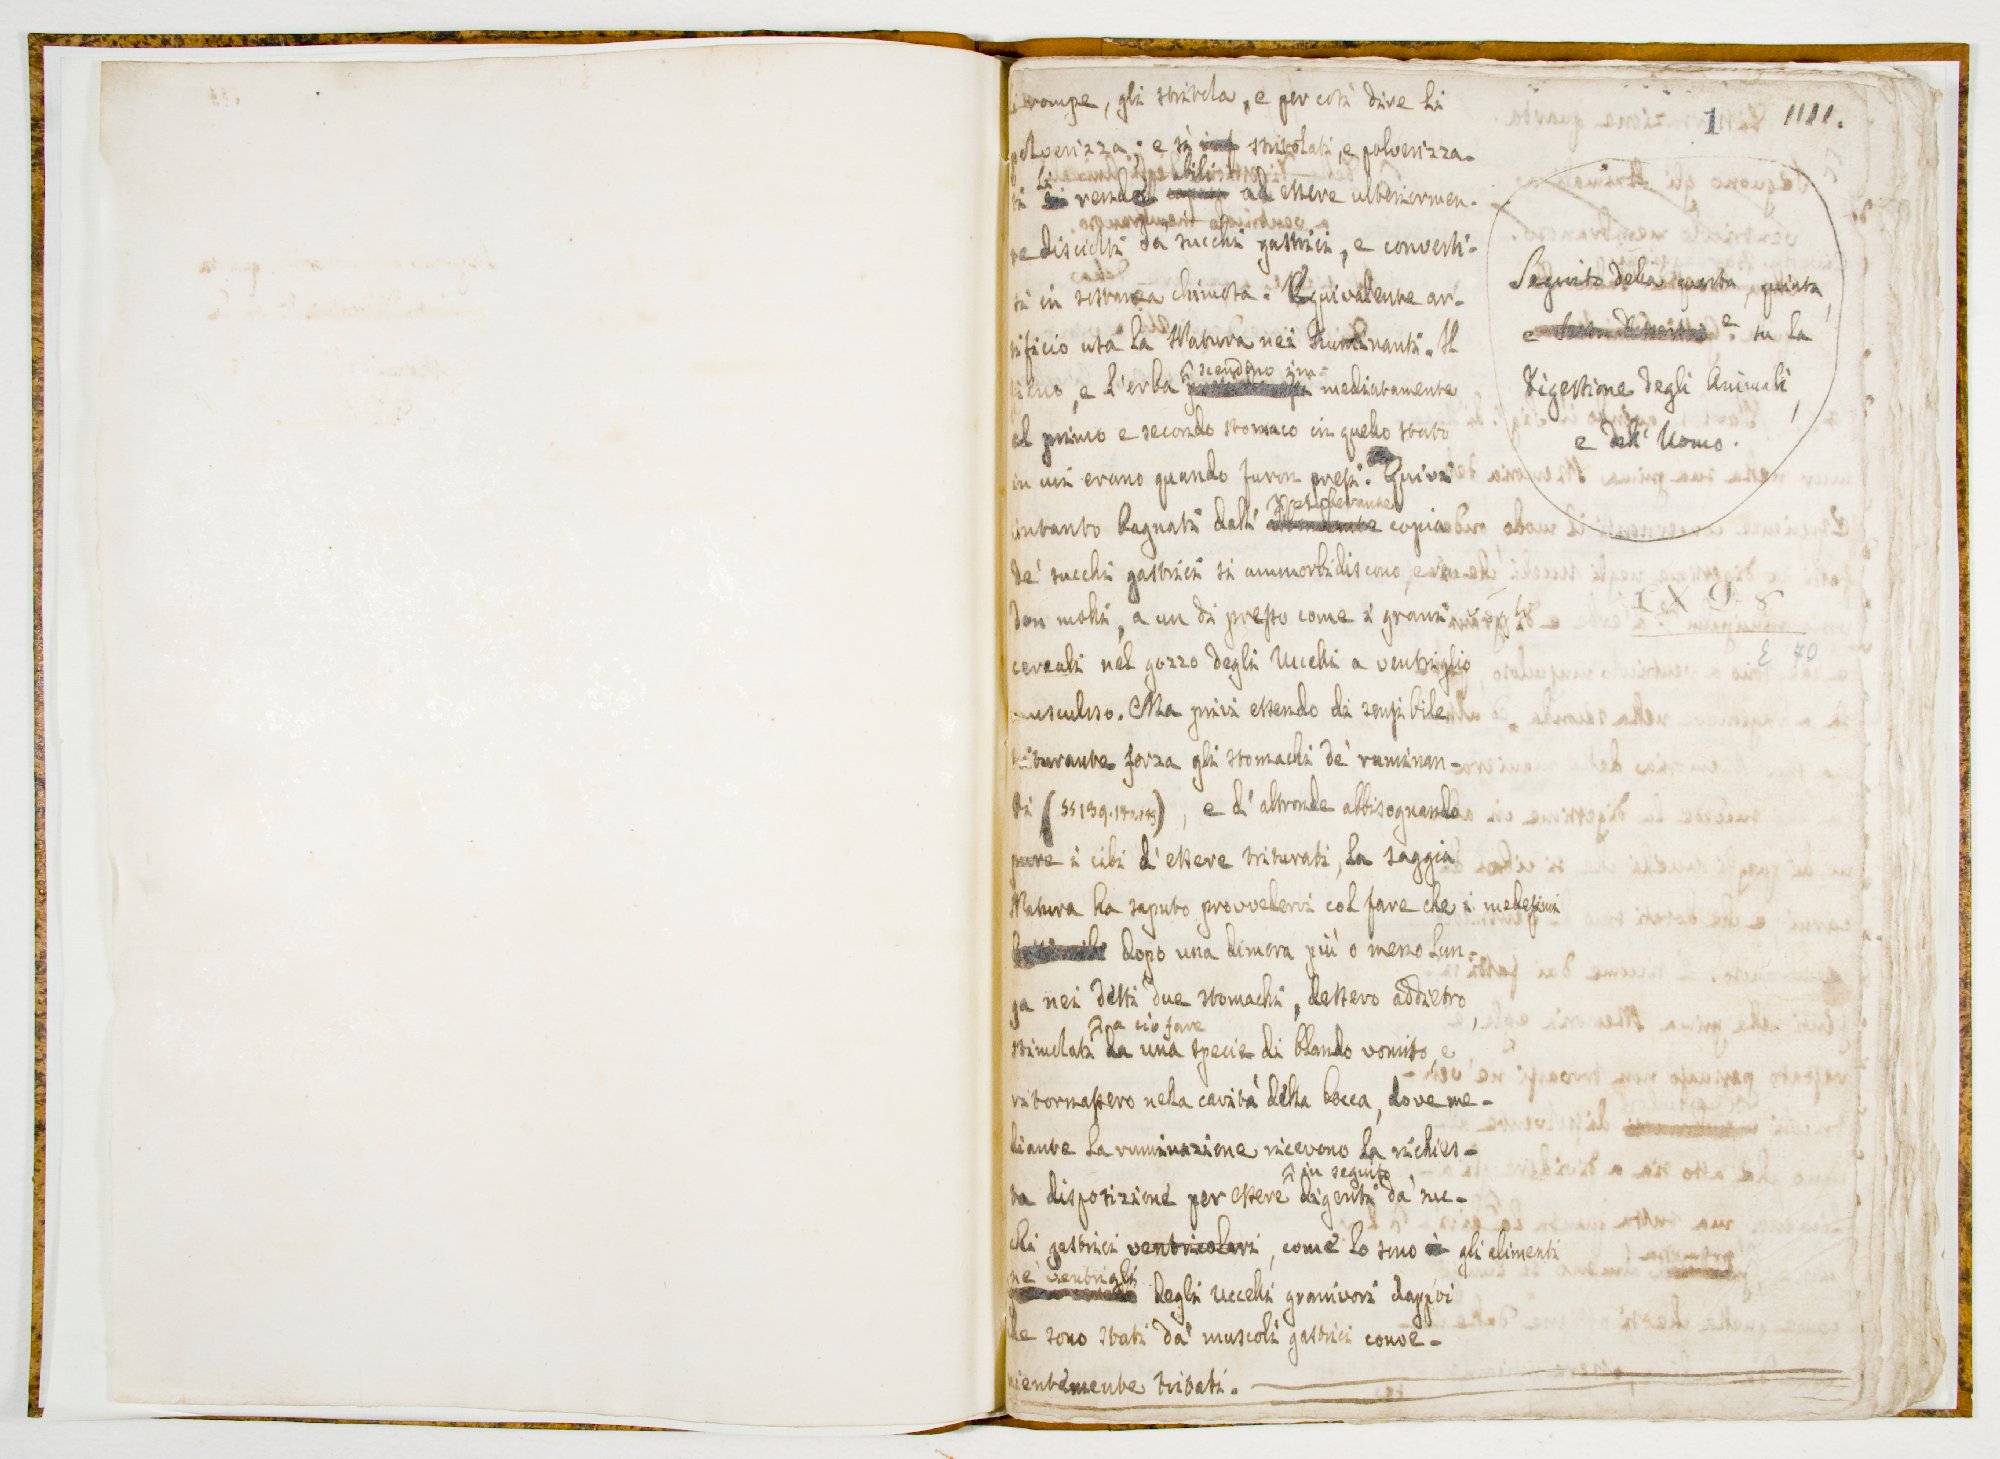 li rompe, gli stritola, e per così dire li
polverizza; e sì stritolati, e polverizza-
ti li rende abili ad essere ulteriormen-
te disciolti da' succhi gastrici, e converti-
ti in sostanza chimosa. Equivalente ar-
tificio usa la Natura nei Ruminanti. Il
fieno, e l'erba scendono im-mediatamente
al primo e secondo stomaco in quello stato
in cui erano quando furon presi. Quivi
intanto bagnati dall' copia
de' succhi gastrici si ammorbidiscono, e ren-
don molli, a un di presso come i grani
cereali nel gozzo degli Uccelli a ventriglio
musculoso. Ma privi essendo di sensibile
triturante forza gli stomachi de' ruminan-
ti (§§ 139. ), e d'altronde abbisognando
pure i cibi d'essere triturati, la saggia
Natura ha saputo provvedervi col fare che i medesimi
dopo una dimora più o meno lun-
ga nei detti due stomachi, dessero addietro,
stimolati a ciò fare da una specie di blando vomito, e
ritornassero nella cavità della bocca, dove me-
diante la ruminazione ricevono la richies-
ta disposizione per essere in seguito digeriti da' suc-
chi gastrici ventricolari, come lo sono gli alimenti
ne' ventrigli degli Uccelli granivori dappoi
che sono stati da' muscoli gastrici conve-
nientemente tritati.
1
1111.
Seguito della quarta, quinta,
e su la
Digestione degli Animali,
e dell' Uomo.
E 70